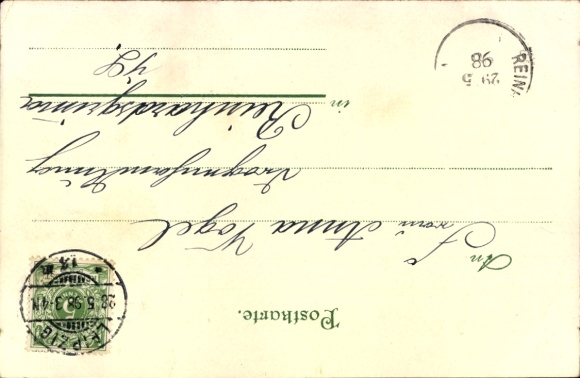 Postkarte.
An Frau Anna Vogel
Drogenhandlung
in Reinhardsgrimma
i/S.
LEIPZIG
28.5.98.3-4N
5
REINH
29 5
98